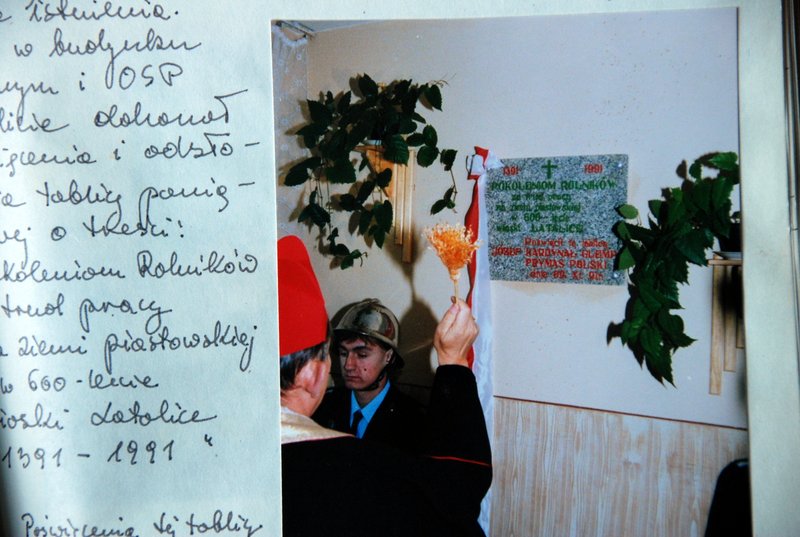 istnienia.
w budynku
nym i OSP
licie dokonał
ięcenia i odsło-
ia tablicy pamią-
ej o treści:
koleniom Rolników
trud pracy
ziemi piastowskiej
w 600-lecie
ioski Latalice
1391 - 1991 "
Poświęcenia tej tablicy
1391 1991
POKOLENIOM ROLNIKÓW
za trud pracy
na ziemi piastowskiej
w 600-lecie
wioski LATALICE
Poświęcił tę tablicę
JÓZEF KARDYNAŁ GLEMP
PRYMAS POLSKI
dnia